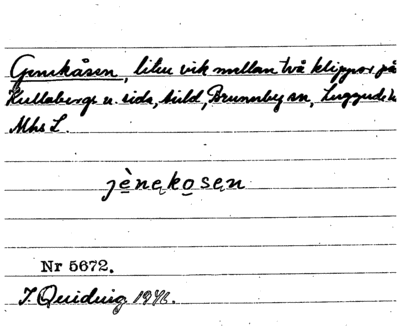 Genekåsen, liten vik mellan två klippor på
Kullabergs n. sida, Brunnby sn, Luggude h.
Mhs L.
jènekosen
Nr 5672.
I. Quidvig 1946.